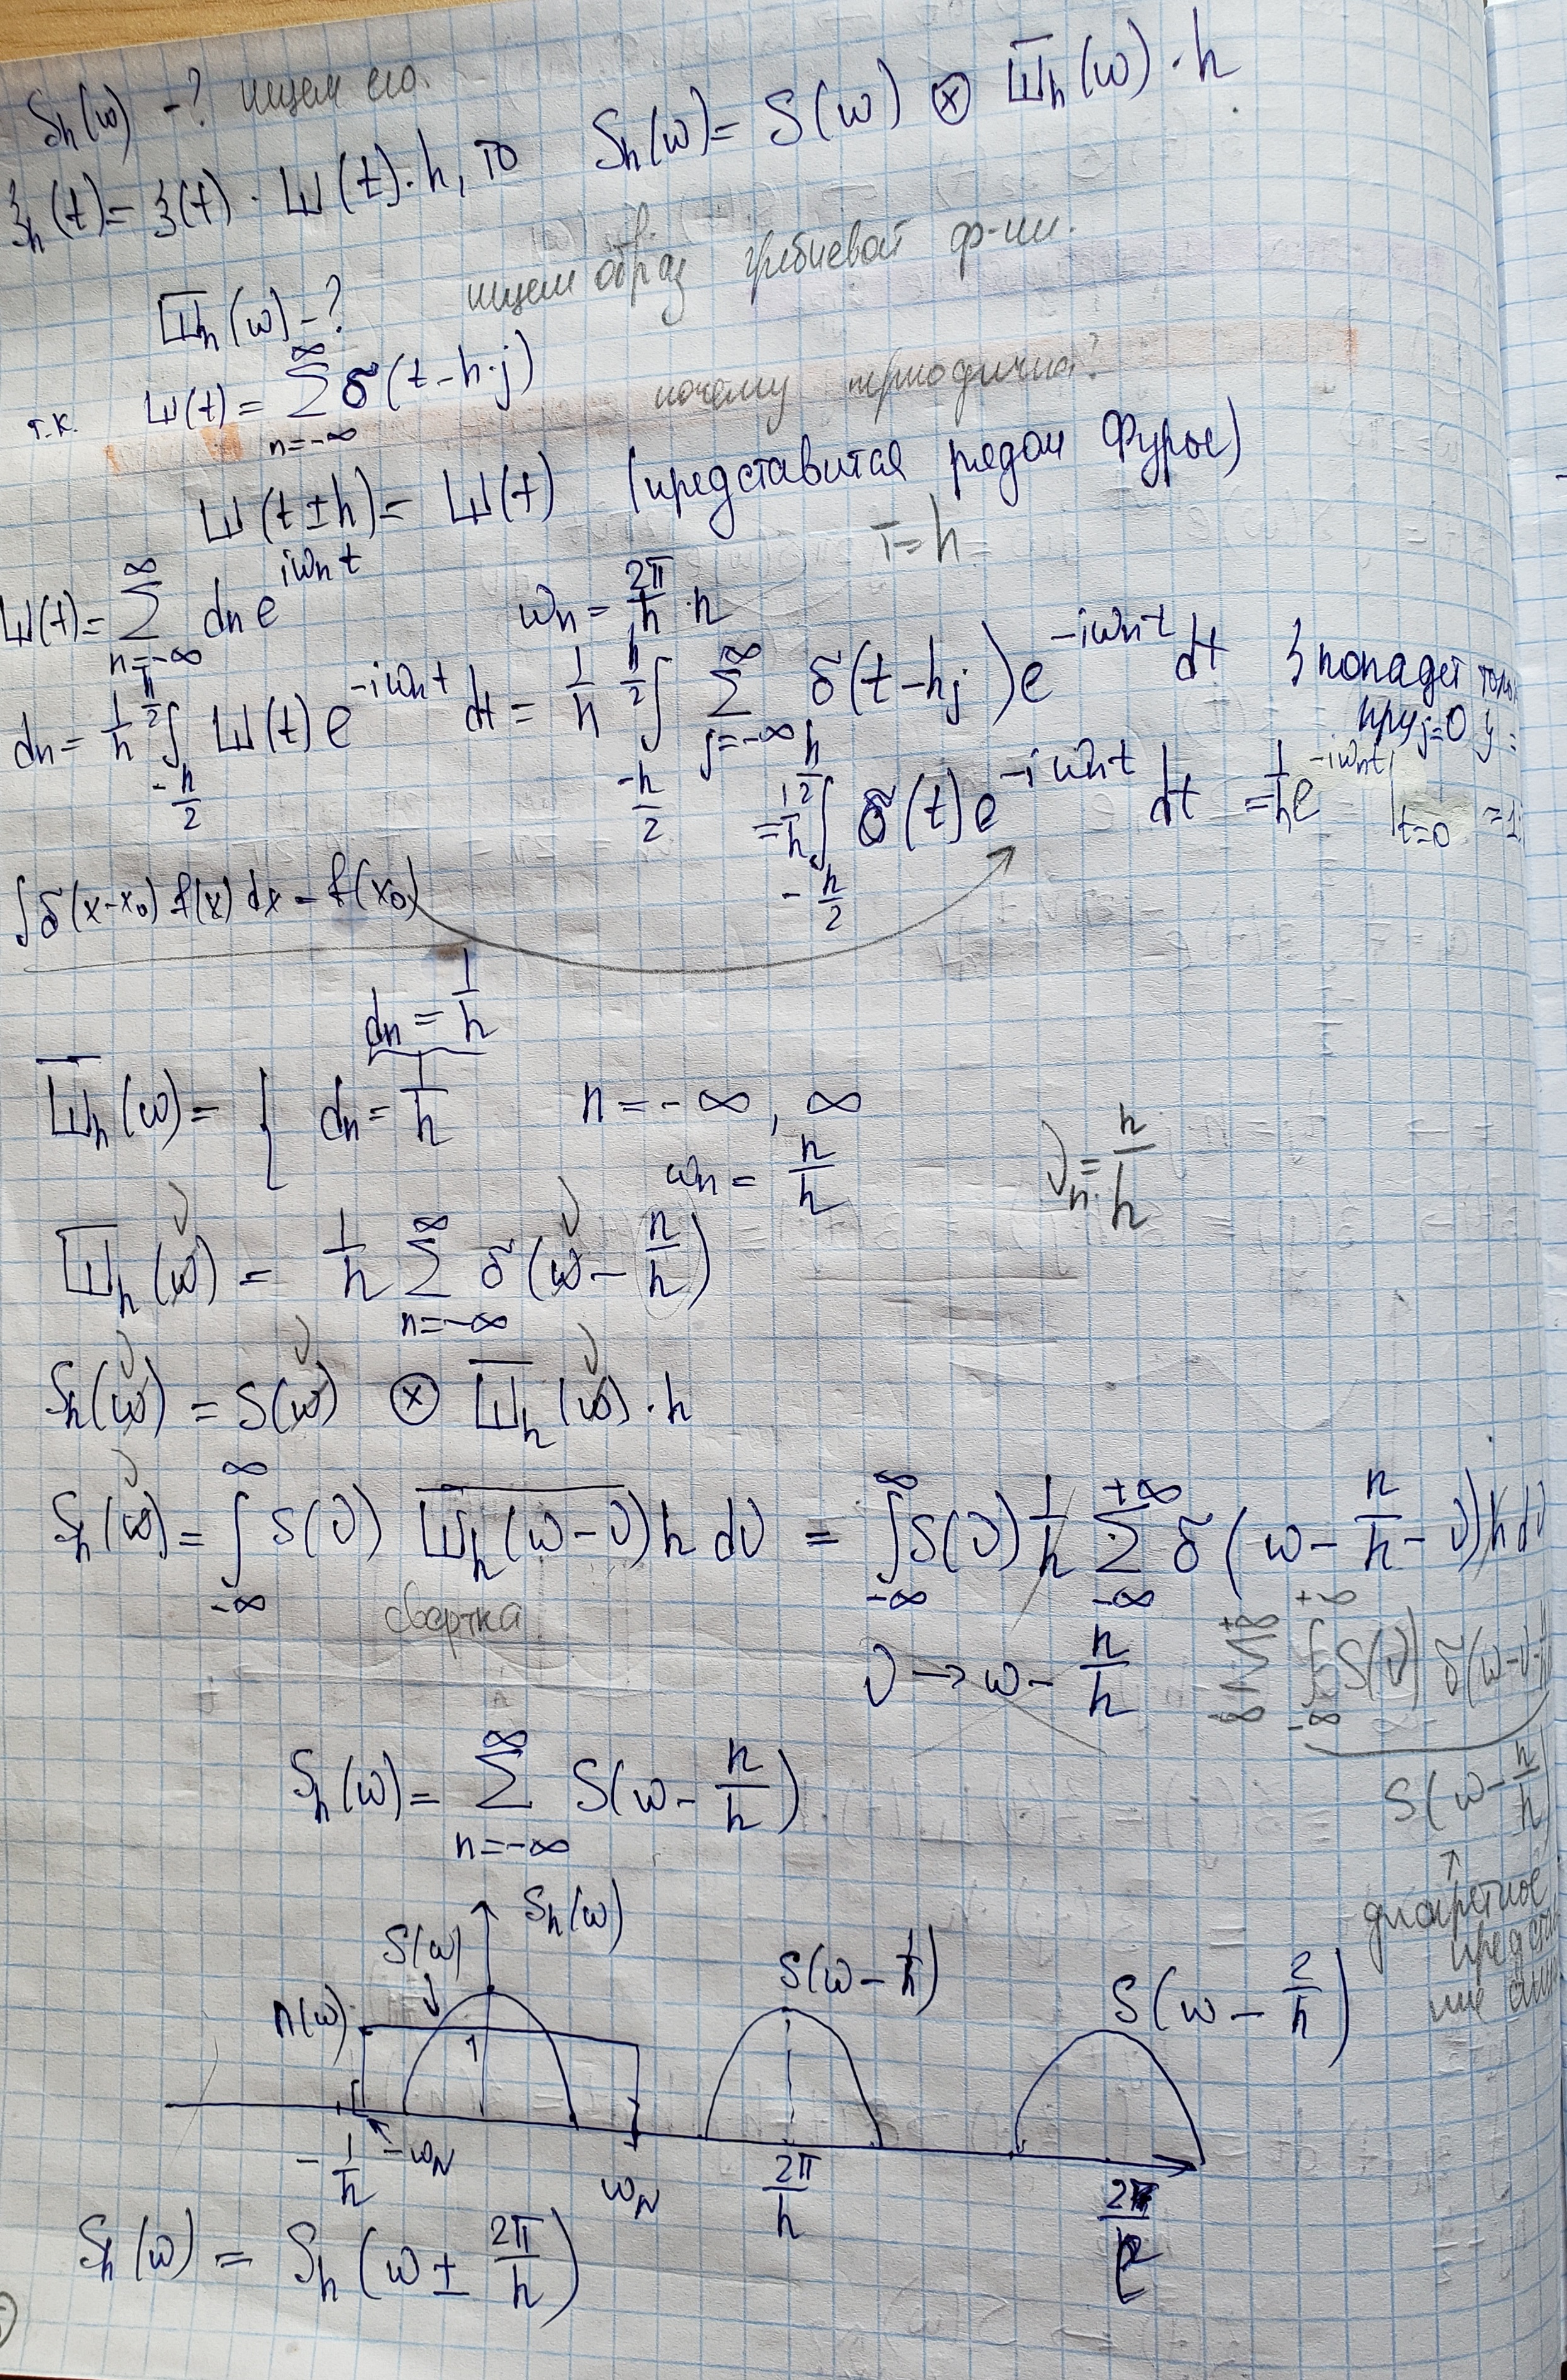 S_h(ω) -? ищем его.
ξ_h(t) = ξ(t) · Ш(t)·h, то S_h(ω) = S(ω) ⊗ Ш̅_h(ω)·h
Ш̅_h(ω) -? ищем образ гребневой ф-ии.
т.к. Ш(t) = ∑_{n=-∞}^{∞} δ(t-h·j) почему периодична?
Ш(t±h) = Ш(t) (представится рядом Фурье)
T=h
Ш(t) = ∑_{n=-∞}^{∞} d_n e^{iω_n t} ω_n = 2π/h · n
d_n = 1/h ∫_{-h/2}^{h/2} Ш(t) e^{-iω_n t} dt = 1/h ∫_{-h/2}^{h/2} ∑_{j=-∞}^{∞} δ(t-hj) e^{-iω_n t} dt } попадет
при j=0 } =
= 1/h ∫_{-h/2}^{h/2} δ(t) e^{-iω_n t} dt = 1/h e^{-iω_n t}|_{t=0} = 1
∫δ(x-x₀) f(x) dx = f(x₀)
d_n = 1/h
Ш̅_h(ω) = { d_n = 1/h n = -∞, ∞
ω_n = n/h ν_n = n/h
Ш̅_h(ν) = 1/h ∑_{n=-∞}^{∞} δ(ν - n/h)
S_h(ν) = S(ν) ⊗ Ш̅_h(ν)·h
S_h(ν) = ∫_{-∞}^{∞} S(ν) Ш̅_h(ω-ν) h dν = ∫_{-∞}^{∞} S(ν) 1/h ∑_{-∞}^{+∞} δ(ω - n/h - ν) h dν
свертка
ν → ω - n/h ∑_{-∞}^{+∞} ∫_{-∞}^{+∞} S(ν) δ(ω-ν-
S_h(ω) = ∑_{n=-∞}^{∞} S(ω - n/h) S(ω - n/h)
↑
дискретное
S_h(ω)
S(ω) S(ω - 1/h) S(ω - 2/h)
П(ω) 1
-1/h -ω_N ω_N 2π/h
S_h(ω) = S_h(ω ± 2π/h)